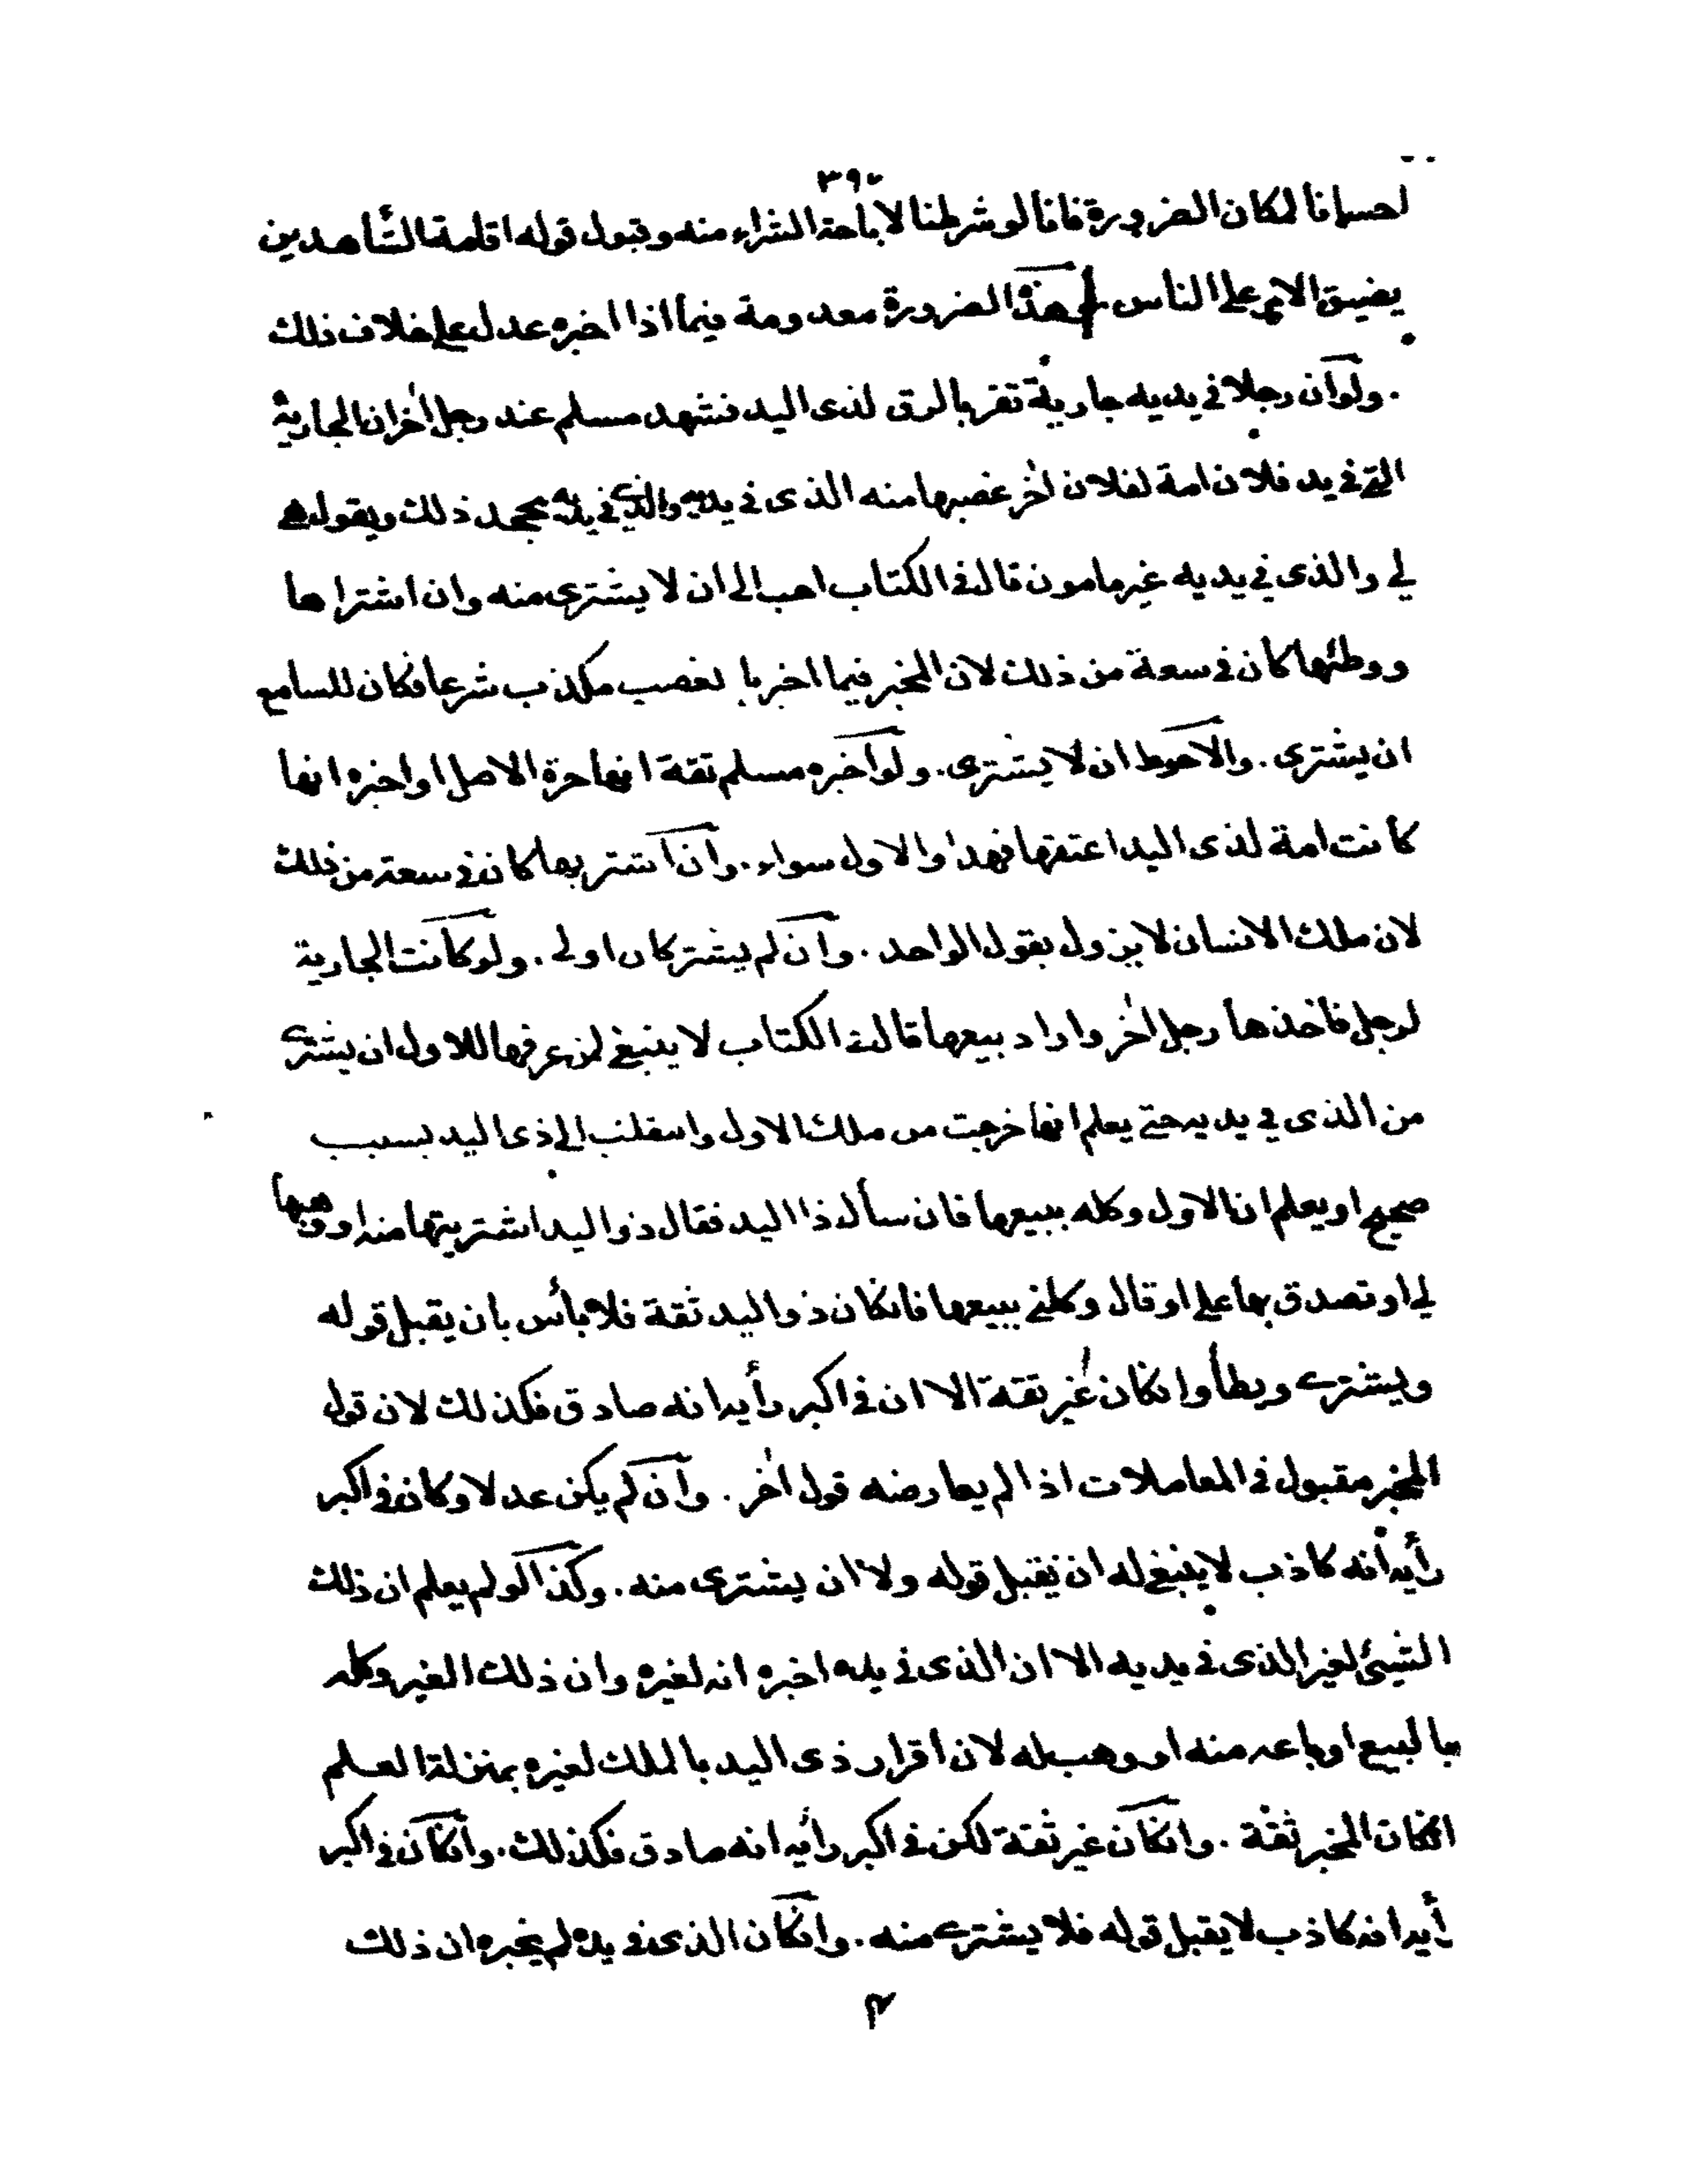 ٣٩٠
احسانا لمكان الضرورة فانا لو شرطنا لاباحة الشراء منه وقبول قوله اقامة الشاهدين
يضيق الامر على الناس هذه الضرورة معدومة فيما اذا اخبره عدل على خلاف ذلك
. ولو ان رجلا في يديه جارية تقر بالرق لذى اليد فشهد مسلم عند رجل اٰخر ان الجارية
التي في يد فلان امة لفلان اٰخر غصبها منه الذى في يديه والذي في يديه يجحد ذلك ويقول هي
لي والذى في يديه غير مامون قال في الكتاب احب الى ان لا يشترى منه وان اشتراها
ووطئها كان في سعة من ذلك لان المخبر فيما اخبر بالغصب مكذب شرعا فكان للسامع
ان يشترى . والاحوط ان لا يشترى . ولو اخبره مسلم ثقة انها حرة الاصل او اخبره انها
كانت امة لذى اليد اعتقها فهذا والاول سواء . وان اشتريها كان في سعة من ذلك
لان ملك الانسان لا يزول بقول الواحد . وان لم يشتر كان اولى . ولو كانت الجارية
لرجل فاخذها رجل اٰخر واراد بيعها قال في الكتاب لا ينبغي لمن عرفها للاول ان يشتري
من الذى في يديه حتى يعلم انها خرجت من ملك الاول وانتقلت الى ذى اليد بسبب
صحيح او يعلم ان الاول وكله ببيعها فان سأل ذا اليد فقال ذو اليد اشتريتها منه او وهبها
لي او تصدق بها علي او قال وكلني ببيعها فانكان ذو اليد ثقة فلا بأس بان يقبل قوله
ويشتري ويطأ وانكان غير ثقة الا ان في اكبر رأيه انه صادق فكذلك لان قول
المخبر مقبول في المعاملات اذا لم يعارضه قول اٰخر . وان لم يكن عدلا وكان في اكبر
رأيه انه كاذب لا ينبغي له ان يقبل قوله ولا ان يشترى منه . وكذا لو لم يعلم ان ذلك
الشيئ لغير الذى في يديه الا ان الذى في يده اخبره انه لغيره وان ذلك الغير وكله
بالبيع او باعه منه او وهبه له لان اقرار ذى اليد بالملك لغيره بمنزلة العلم
انكان المخبر ثقة . وانكان غير ثقة لكن في اكبر رأيه انه صادق فكذلك . وانكان في اكبر
رأيه انه كاذب لا يقبل قوله فلا يشتري منه . وانكان الذى في يده لم يخبره ان ذلك